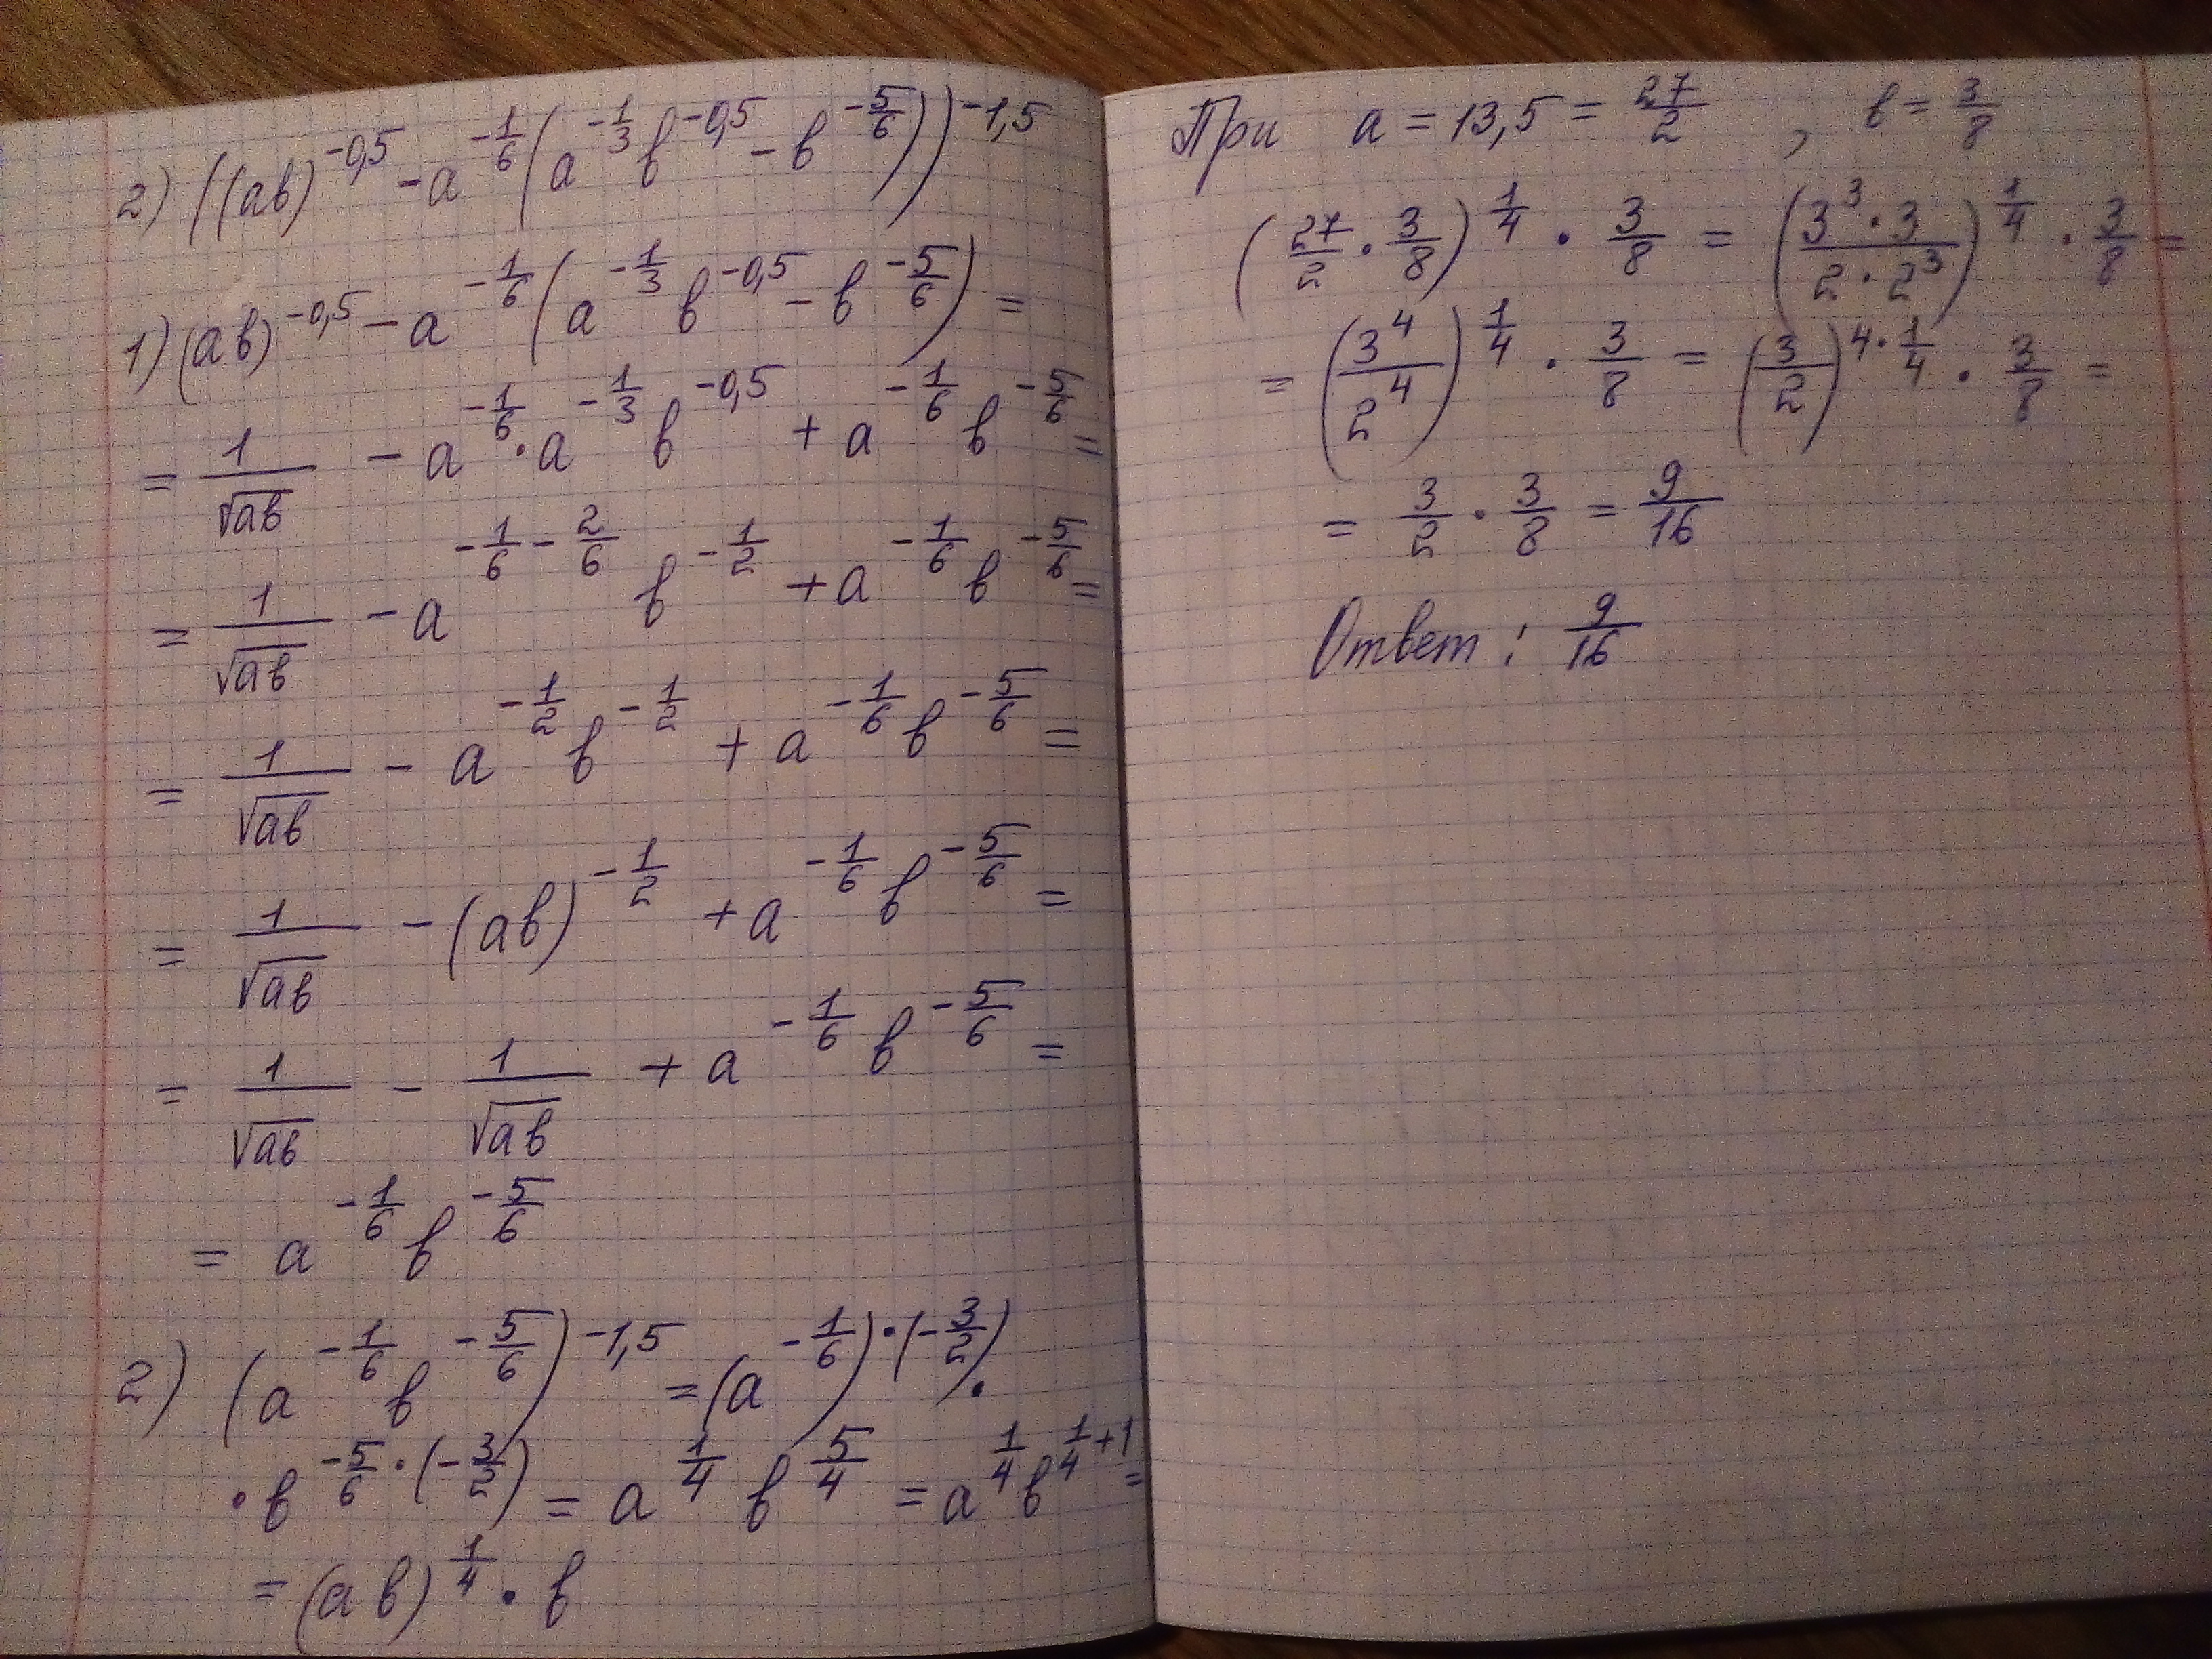 2) ((ab)^{-0,5} - a^{-\frac{1}{6}}(a^{-\frac{1}{3}} b^{-0,5} - b^{-\frac{5}{6}}))^{-1,5}
1) (ab)^{-0,5} - a^{-\frac{1}{6}}(a^{-\frac{1}{3}} b^{-0,5} - b^{-\frac{5}{6}}) =
= \frac{1}{\sqrt{ab}} - a^{-\frac{1}{6}} · a^{-\frac{1}{3}} b^{-0,5} + a^{-\frac{1}{6}} b^{-\frac{5}{6}} =
= \frac{1}{\sqrt{ab}} - a^{-\frac{1}{6} - \frac{2}{6}} b^{-\frac{1}{2}} + a^{-\frac{1}{6}} b^{-\frac{5}{6}} =
= \frac{1}{\sqrt{ab}} - a^{-\frac{1}{2}} b^{-\frac{1}{2}} + a^{-\frac{1}{6}} b^{-\frac{5}{6}} =
= \frac{1}{\sqrt{ab}} - (ab)^{-\frac{1}{2}} + a^{-\frac{1}{6}} b^{-\frac{5}{6}} =
= \frac{1}{\sqrt{ab}} - \frac{1}{\sqrt{ab}} + a^{-\frac{1}{6}} b^{-\frac{5}{6}} =
= a^{-\frac{1}{6}} b^{-\frac{5}{6}}
2) (a^{-\frac{1}{6}} b^{-\frac{5}{6}})^{-1,5} = (a^{-\frac{1}{6}})^{·(-\frac{3}{2})} ·
· b^{-\frac{5}{6} · (-\frac{3}{2})} = a^{\frac{1}{4}} b^{\frac{5}{4}} = a^{\frac{1}{4}} b^{\frac{1}{4} + 1} =
= (ab)^{\frac{1}{4}} · b
При a = 13,5 = \frac{27}{2} , b = \frac{3}{8}
(\frac{27}{2} · \frac{3}{8})^{\frac{1}{4}} · \frac{3}{8} = (\frac{3^3 · 3}{2 · 2^3})^{\frac{1}{4}} · \frac{3}{8} =
= (\frac{3^4}{2^4})^{\frac{1}{4}} · \frac{3}{8} = (\frac{3}{2})^{4 · \frac{1}{4}} · \frac{3}{8} =
= \frac{3}{2} · \frac{3}{8} = \frac{9}{16}
Ответ : \frac{9}{16}